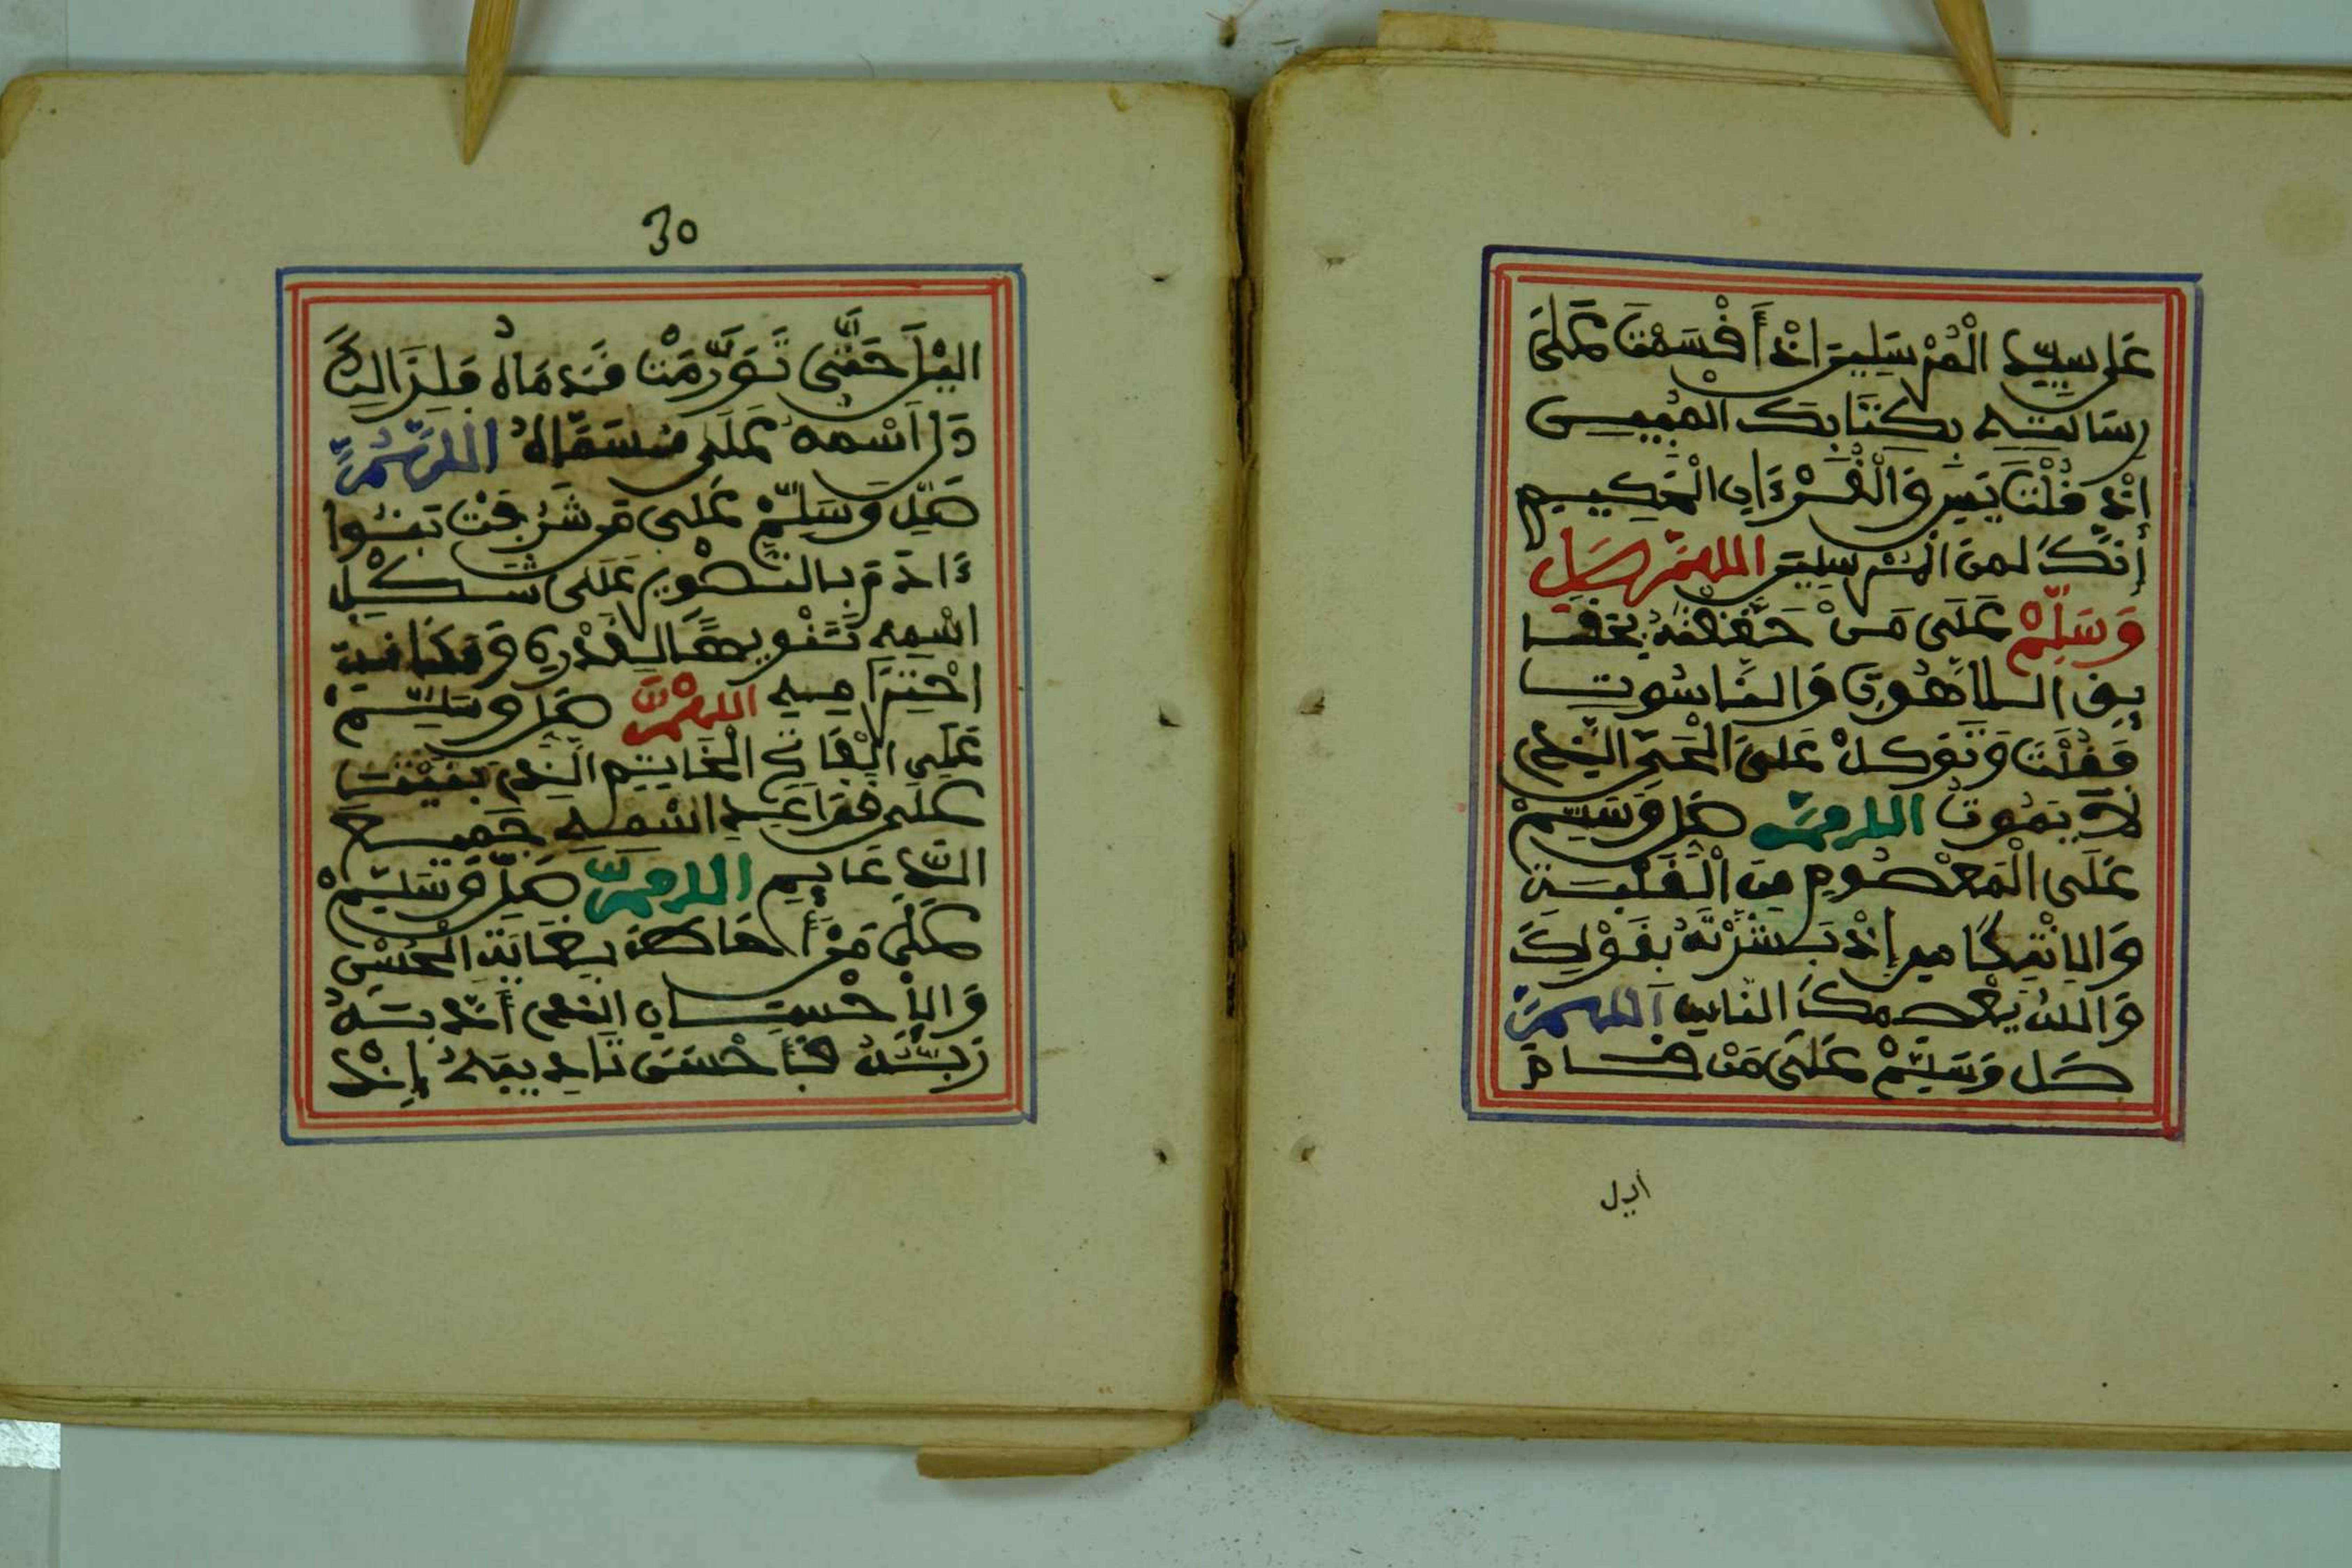 عَلَى سَيِّدِ الْمُرْسَلِينَ اذْ أَقْسَمْتَ عَلَى
رِسَالَتِهِ بِكِتَابِكَ الْمُبِينِ
إذْ قُلْتَ يَسِ وَالْقُرْءَانِ الْحَكِيمِ
أنَّكَ لَمِنَ الْمُرْسَلِينَ اللهُمَّ صَلِّ
وَسَلِّمْ عَلَى مَنْ حَقَّقْتَهُ بِحَقَا
يِقِ اللَّاهُوتِ وَالنَّاسُوتِ
فَقُلْتَ وَتَوَكَّلْ عَلَى الْحَيِّ الَّذِي
لَا يَمُوتُ اللهُمَّ صَلِّ وَسَلِّمْ
عَلَى الْمَعْصُومِ مِنَ الْغَلَبَةِ
وَالِانْتِكَاسِ إذْ بَشَّرْتَهُ بِقَوْلِكَ
وَاللهُ يَعْصِمُكَ مِنَ النَّاسِ اللهُمَّ
صَلِّ وَسَلِّمْ عَلَى مَنْ قَامَ
اليل
30
اليْلَ حَتَّى تَوَرَّمَتْ قَدَمَاهُ فَلِذَالِكَ
دَلَّ اسْمُهُ عَلَى مُسَمَّاهُ اللهُمَّ
صَلِّ وَسَلِّمْ عَلَى مَن شَرُفَتْ بَنُوا
ءَادَمَ بِالتَّصْوِيرِ عَلَى شَكْلِ
اسْمِهِ تَنْوِيهًا لِقَدْرِهِ وَمَكَانَتِ
احْتِرَامِهِ اللهُمَّ صَلِّ وَسَلِّمْ
عَلَى الْفَاتِحِ الْخَاتِمِ الَّذِي بَنَيْتَ
عَلَى قَوَاعِدِ اسْمِهِ جَمِيعَ
الدَّعَايِمِ اللهُمَّ صَلِّ وَسَلِّمْ
عَلَى مَنْ أَحَاطَ بِغَايَةِ الْحُسْنِ
وَالإِحْسَانِ الَّذِي أَدَّبَهُ
رَبُّهُ فَأَحْسَنَ تَادِيبَهُ إِذْ